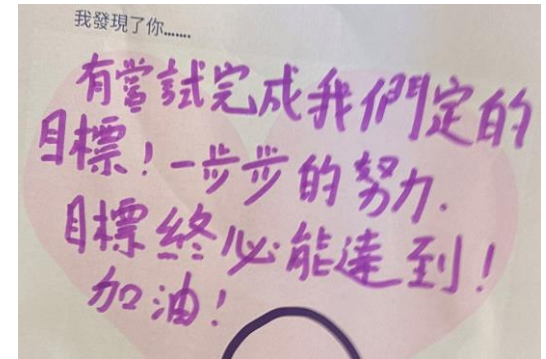 我發現了你.......
有嘗試完成我們定的
目標！一步步的努力.
目標終必能達到！
加油！